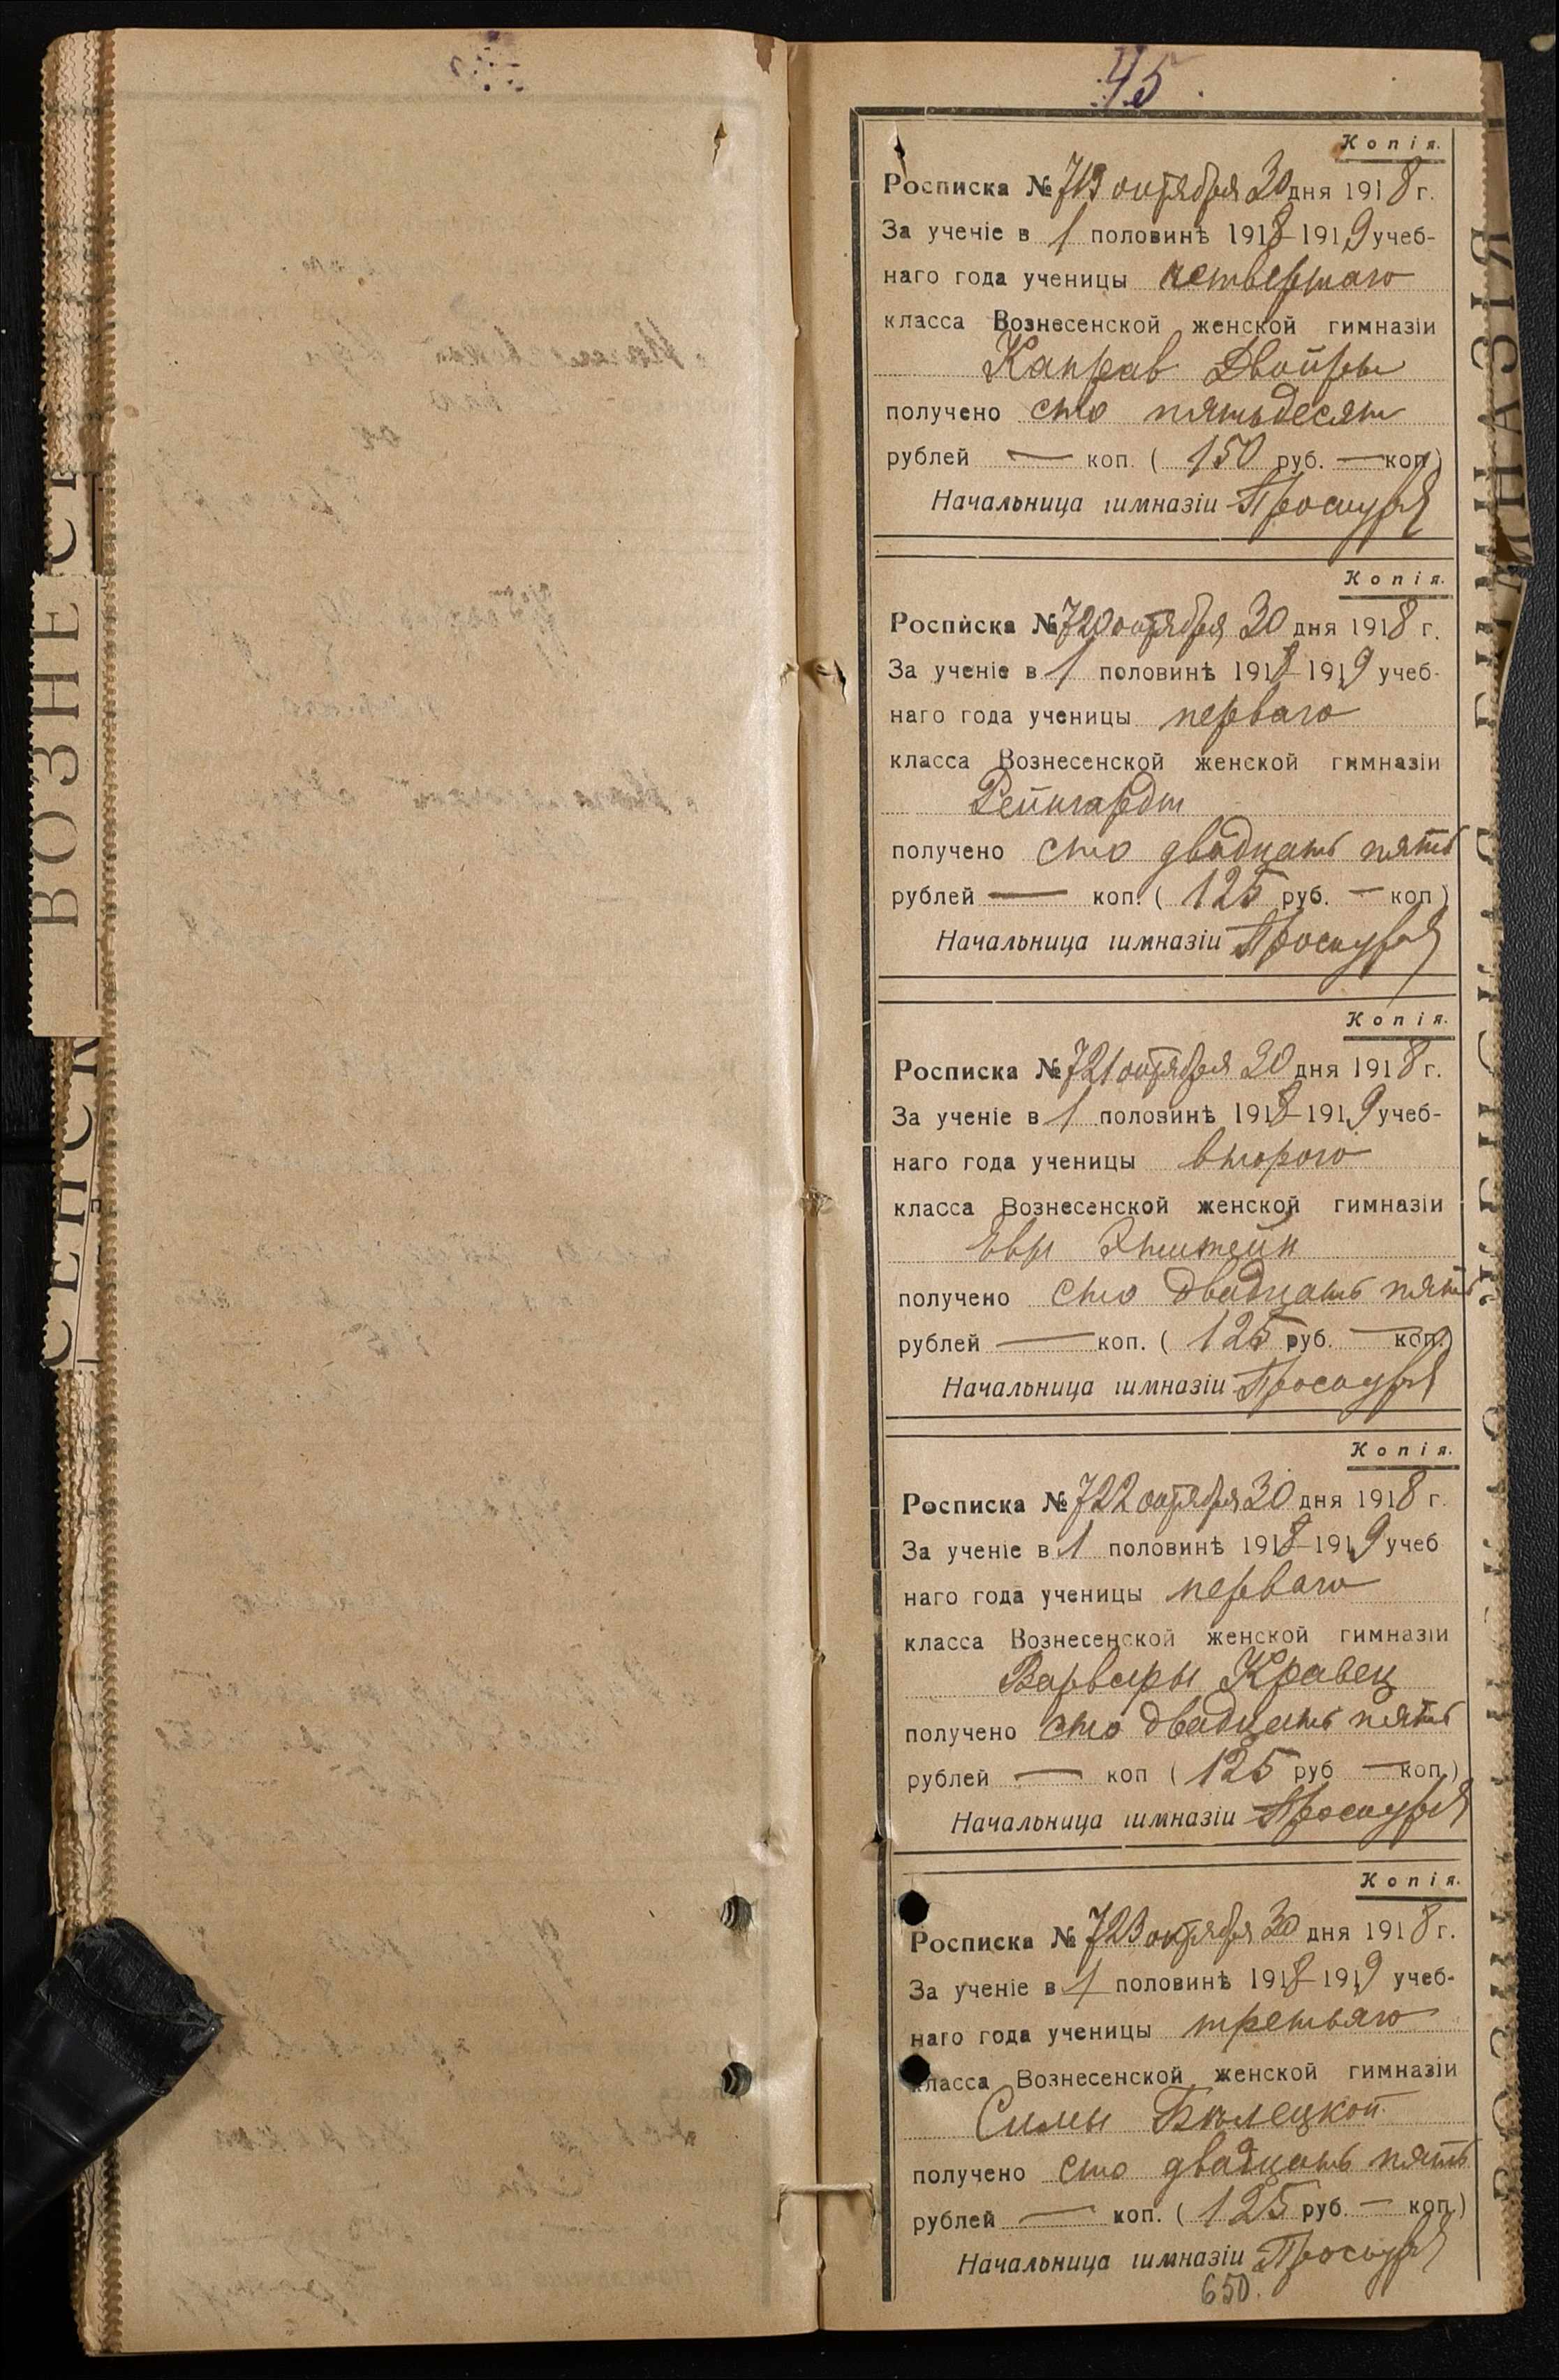 45
Копія.
Росписка № 719 октября 30 дня 1918 г.
За ученіе в 1 половинѣ 1918-1919 учеб-
наго года ученицы четвертаго
класса Вознесенской женской гимназіи
Каправ Двойры
получено сто пятьдесят
рублей — коп. ( 150 руб. — коп)
Начальница гимназіи
Копія.
Росписка № 720 октября 30 дня 1918 г.
За ученіе в 1 половинѣ 1918-1919 учеб-
наго года ученицы перваго
класса Вознесенской женской гимназіи
Рейнгардт
получено сто двадцать пять
рублей — коп. ( 125 руб. — коп)
Начальница гимназіи
Копія.
Росписка № 721 октября 30 дня 1918 г.
За ученіе в 1 половинѣ 1918-1919 учеб-
наго года ученицы второго
класса Вознесенской женской гимназіи
Евы Эпштейн
получено сто двадцать пять
рублей — коп. ( 125 руб. — коп.)
Начальница гимназіи
Копія.
Росписка № 722 октября 30 дня 1918 г.
За ученіе в 1 половинѣ 1918-1919 учеб
наго года ученицы перваго
класса Вознесенской женской гимназіи
Варвары Кравец
получено сто двадцать пять
рублей — коп ( 125 руб — коп.)
Начальница гимназіи
Копія.
Росписка № 723 октября 30 дня 1918 г.
За ученіе в 1 половинѣ 1918-1919 учеб-
наго года ученицы третьяго
класса Вознесенской женской гимназіи
Симы Бѣлецкой
получено сто двадцать пять
рублей — коп. ( 125 руб. — коп.)
Начальница гимназіи
650.
ВОЗНЕ